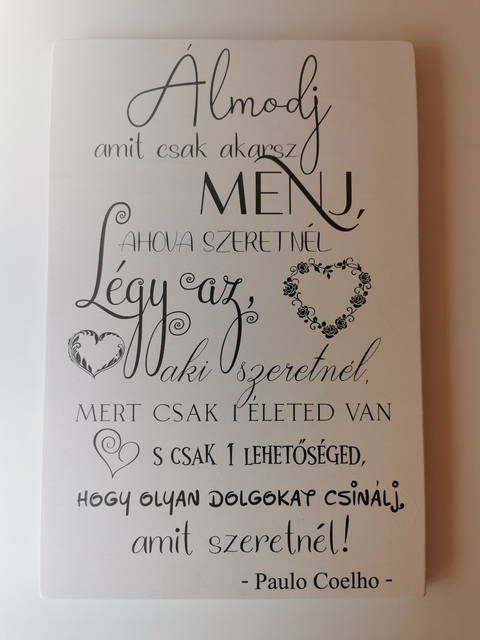 Álmodj
amit csak akarsz
MENJ,
AHOVA SZERETNÉL
Légy az,
aki szeretnél,
MERT CSAK 1 ÉLETED VAN
S CSAK 1 LEHETŐSÉGED,
HOGY OLYAN DOLGOKAT CSINÁLJ,
amit szeretnél!
- Paulo Coelho -